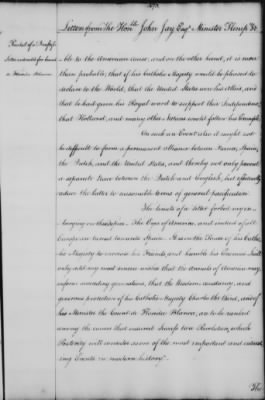 Letters from The Honble John Jay Esqr Minister Plenipo &c
ble to the American cause; and on the other hand, it is more
than probable, that if his Catholic Majesty would be pleased to
declare to the World, that the United States were his allies, and
that he had given his Royal word to support their Independence,
that Holland, and many other Nations would follow his Example.
On such an Event also it might not
be difficult to form a permanent alliance between France, Spain,
the Dutch, and the United States, and thereby not only prevent
a separate Peace between the Dutch and English, but effectually
reduce the latter to reasonable terms of general pacification.
The limits of a letter forbid my en-
larging on these topics. The Eyes of America, and indeed of all
Europe are turned towards Spain. It is in the Power of his Catho-
lic Majesty to increase his Friends, and humble his Enemies. I will
only add my most sincere wishes that the Annals of America may
inform succeeding generations, that the Wisdom, constancy, and
generous protection of his Catholic Majesty Charles the third, and of
his Minister the Count de Florida Blanca, are to be ranked
among the causes that ensured success to a Revolution, which
Posterity will consider as one of the most important and interest-
ing Events in modern history.